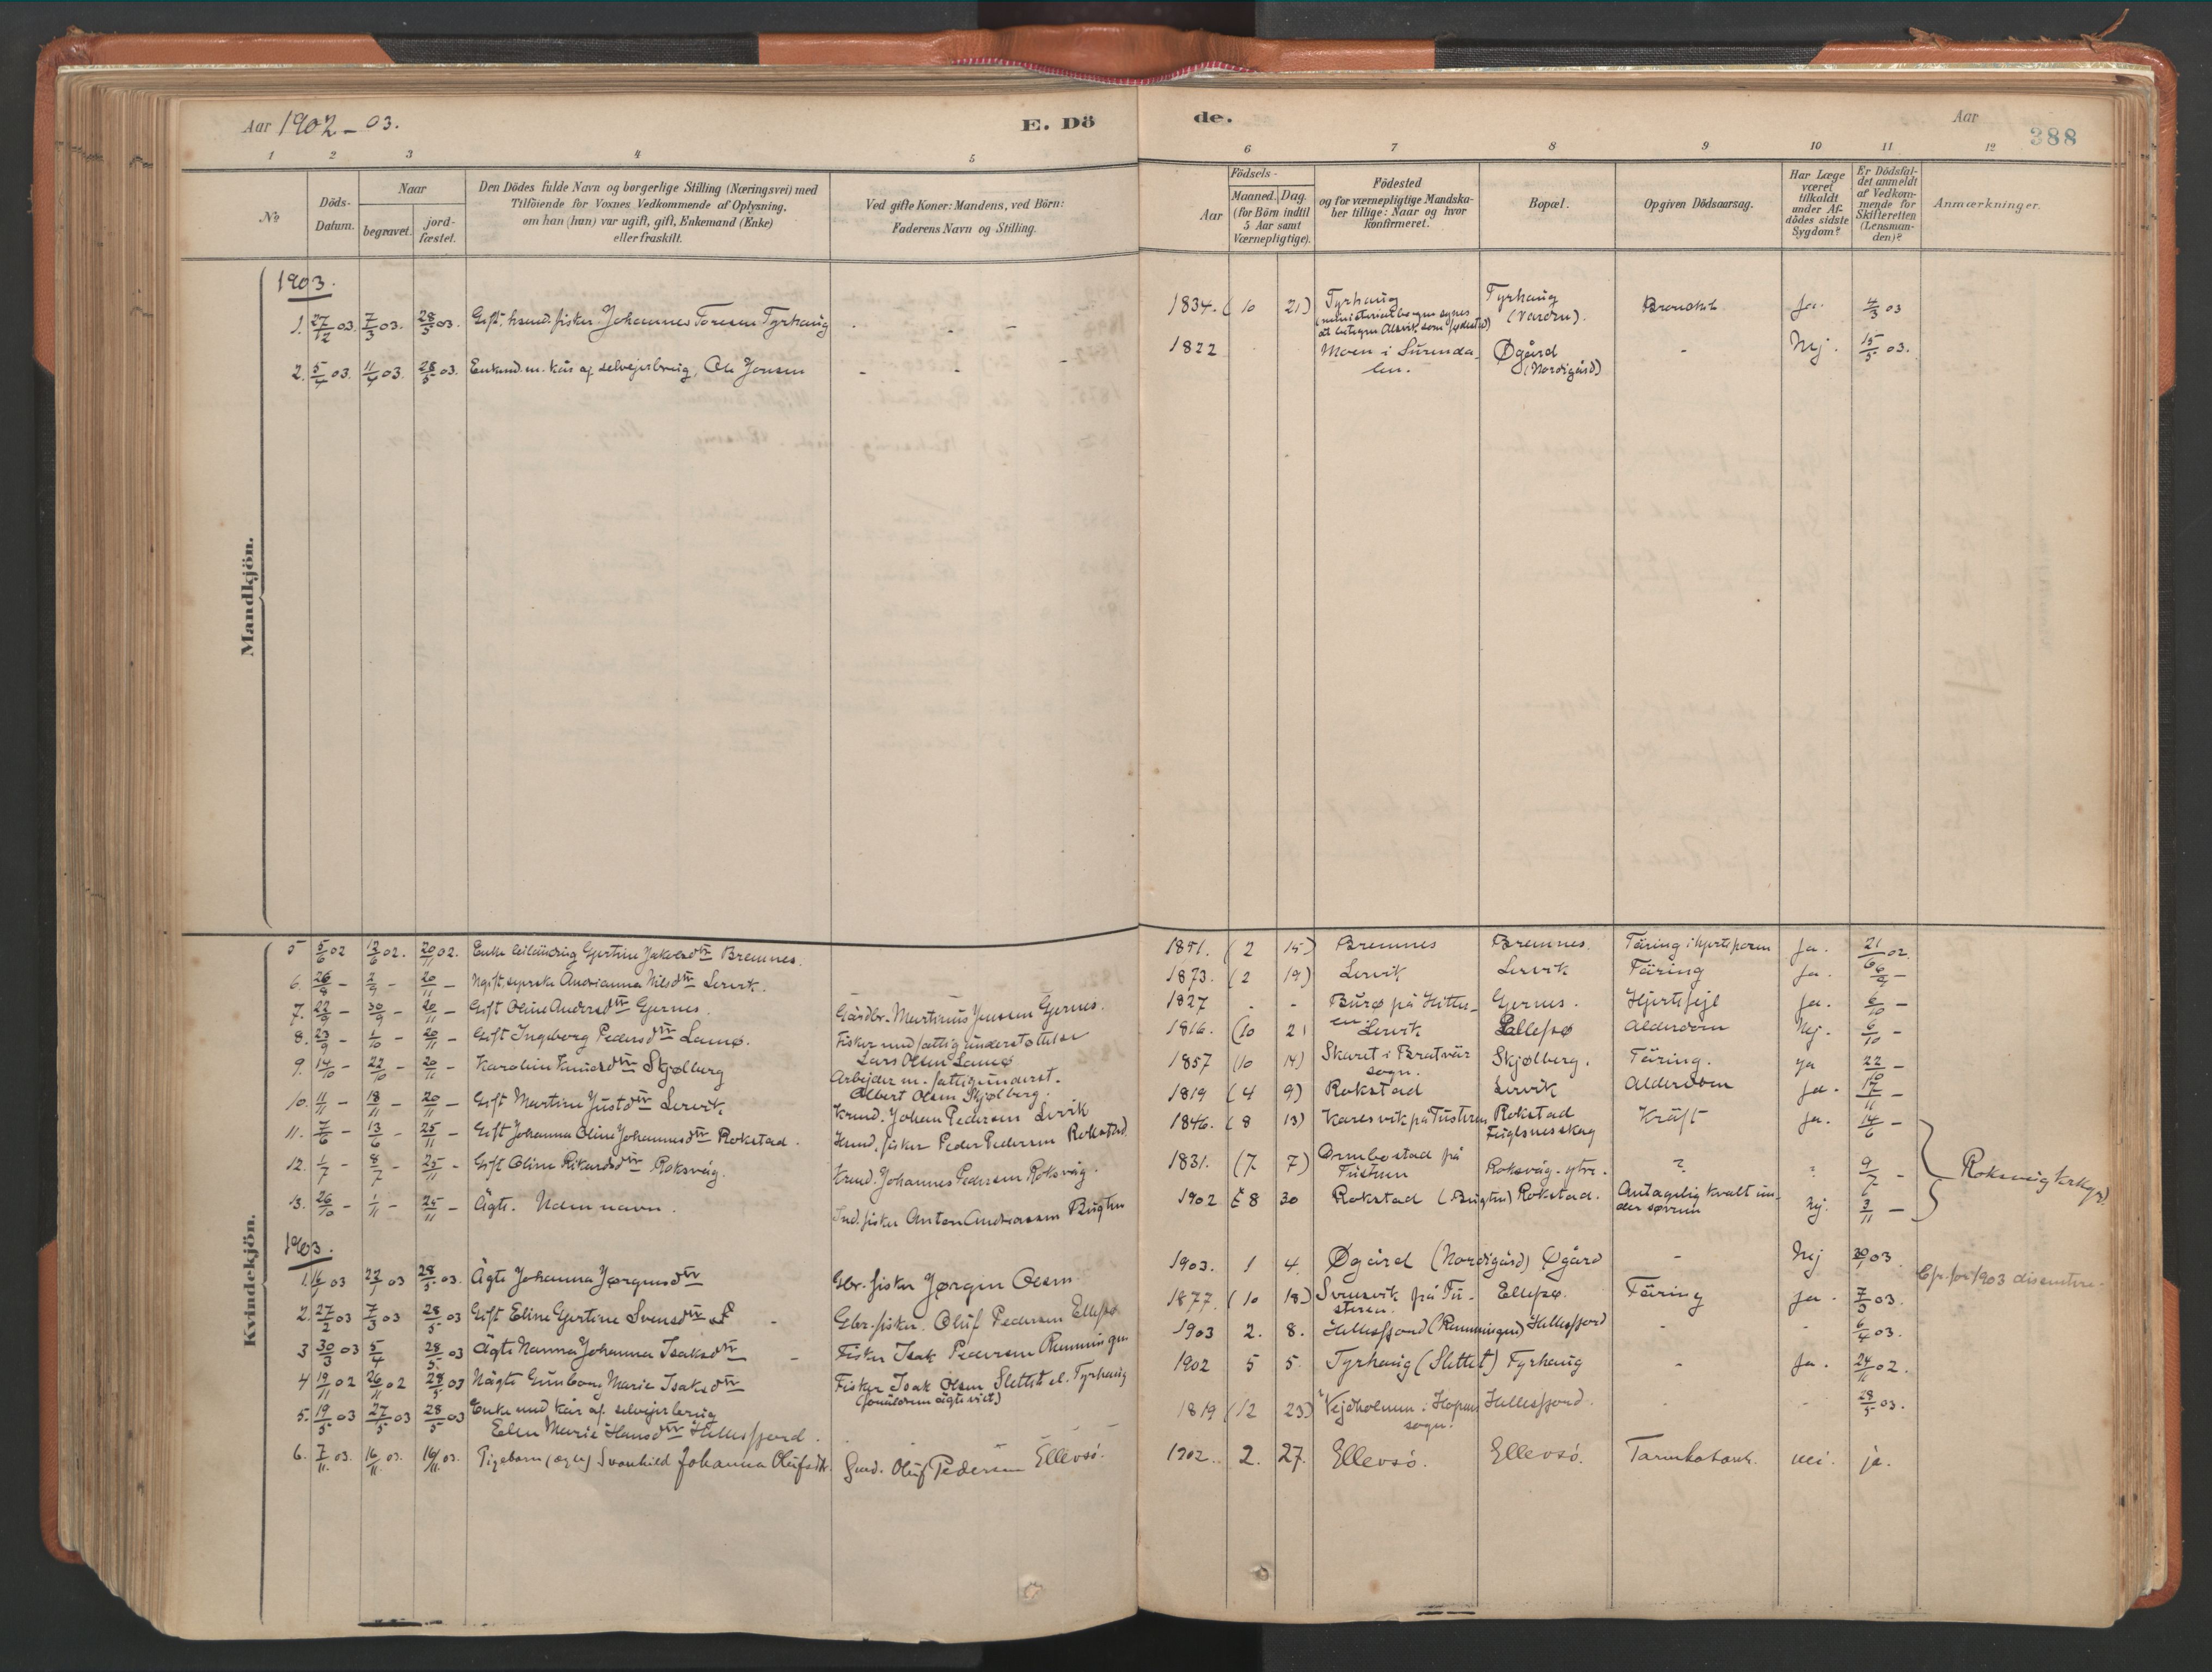 Aar 1902-03.
E. Dö
de.
Aar
388
1 2 3 4 5 6 7 8 9 10 11 12
No
Döds-
Datum.
Naar
begravet.
jord-
fæstet.
Den Dödes fulde Navn og borgerlige Stilling (Næringsvei) med
Tilföiende for Voxnes Vedkommende af Oplysning,
om han (hun) var ugift, gift, Enkemand (Enke)
eller fraskilt.
Ved gifte Koner: Mandens, ved Börn:
Faderens Navn og Stilling.
Födsels-
Aar
Maaned. Dag.
(for Börn indtil
5 Aar samt
Værnepligtige).
Födested
og for værnepligtige Mandska-
ber tillige: Naar og hvor
konfirmeret.
Bopæl.
Opgiven Dödsaarsag.
Har Læge
været
tilkaldt
under Af-
dödes sidste
Sygdom?
Er Dödsfal-
det anmeldt
af Vedkom-
mende for
Skifteretten
(Lensman-
den)?
Anmærkninger.
Mandkjön.
1903.
1. 27/12 03. 7/3 03. 28/5 03. Gift, husmd. fisker Johannes Toresen Tyrhaug - - 1834. (10 21) Tyrhaug Tyrhaug (Varden). Bronchit. Ja. 4/3 03
(ministerialbogen synes
at betegne Alsvik som fødested)
2. 5/4 03. 11/4 03. 28/5 03. Enkemd. m. kår af selvejerbrug, Ole Jensen - - 1822 Moen i Surenda- Øgård - Nej. 15/5 03.
len. (Nordigård)
Kvindekjön.
5 5/6 02 12/6 02. 20/11 02. Enke leilending Gjertine Jakobsdtr Bremnes. 1851. (2 15) Bremnes Bremnes. Täring i hjerteposen Ja. 21/6 02.
6. 26/8 - 2/9 - 20/11 - Ugift, syerske Andrianna Nilsdtr Lervik. 1873. (2 19) Lervik Lervik Täring Ja. 6/9 -
7. 22/9 - 30/9 - 20/11 - Gift Oline Andersdtr Gjernes. Gårdbr. Martinus Jensen Gjernes. 1827 - - Burø på Hitter- Gjernes. Hjertefejl Ja. 6/10 -
en
8. 23/9 - 1/10 - 20/11 - Gift Ingeborg Pedersdtr Lamø. Fisker med fattigunderstøttelse 1816. (10 21 Lervik Ellefsø Alderdom Nej. 6/10 -
Lars Olsen Lamø
9. 14/10 - 22/10 - 20/11 - Karolin Knudsdtr Skjølberg Arbejder m. fattigunderst. 1857 (10 14) Skaret i Bratvär Skjølberg. Täring. Ja 22/10 -
Albert Olsen Skjølberg. sogn.
10. 11/11 - 18/11 - 20/11 - Gift Martine Justdtr Lervik Kaarmd. Johan Pedersen Lervik 1819 (4 9) Rokstad Lervik Alderdom Ja. 17/11 -
11. 7/6 - 13/6 - 25/11 - Gift Johanna Oline Johannesdtr Rokstad. Husmd. fisker Peder Pedersen Rokstad 1846. (8 13) Karlsvik på Tustern Rokstad Kräft Ja. 14/6 -
Fuglsnesskag
12. 1/7 - 8/7 - 25/11 - Gift Oline Rikardsdtr Roksvåg. Kaarmd. Johannes Pedersen Roksvåg. 1831. (7 7) Ormbostad på Roksvåg. ytre. ? ? 9/7 -
Tustern
Roksvåg kirkegård.
13. 26/10 - 1/11 - 25/11 - Ägte. Uden navn. Indr. fisker Anton Andreassen Bugten 1902 8 30 Rokstad (Bugten) Rokstad. Antagelig kvalt un- Nej. 3/11 -
der søvnen
1903.
1. 16/1 03 27/1 03 28/5 03. Ägte Johanna Jørgensdtr Gbr. fisker Jørgen Olsen 1903. 1 4. Øgård (Nordigård) Øgård - Nej 30/1 03.
Cfr. for 1903 dissentere-
2. 27/2 03 7/3 03 28/5 03 Gift Eline Gjertine Svensdtr Gbr. fisker. Oluf Pedersen Ellefsø 1877. (10 18) Svensvik på Tu- Ellefsø. Täring Ja. 7/3 03.
steren.
3 30/3 03 5/4 28/5 03 Ägte Nanna Johanna Isaksdtr - Fisker Isak Pedersen Remmingen 1903 2. 8. Hellesfjord (Remmingen) Hellesfjord - - 6/4 03.
4 19/11 02 26/11 02 28/5 03 Uägte Gunborg Marie Isaksdtr Fisker Isak Olsen Slettet el. Tyrhaug 1902 5 5 Tyrhaug (Slettet) Tyrhaug - Ja. 24/11 02.
(foräldrene ägteviet)
5. 19/5 03 27/5 03 28/5 03 Enke med kår af selvejerbrug 1819 (12 23) Vejholmen i Hopens Hellesfjord. - - 28/5 03.
Elen Marie Hansdtr Hellesfjord. sogn.
6. 7/11 03. 16/11 03. 16/11 03. Pigebarn (ægte) Svanhild Johanna Olufsdtr. Gmd. Oluf Pedersen Ellevsö. 1902. 2. 27. Ellevsö. Ellevsö. Tarmkatarrh. nei. ja.